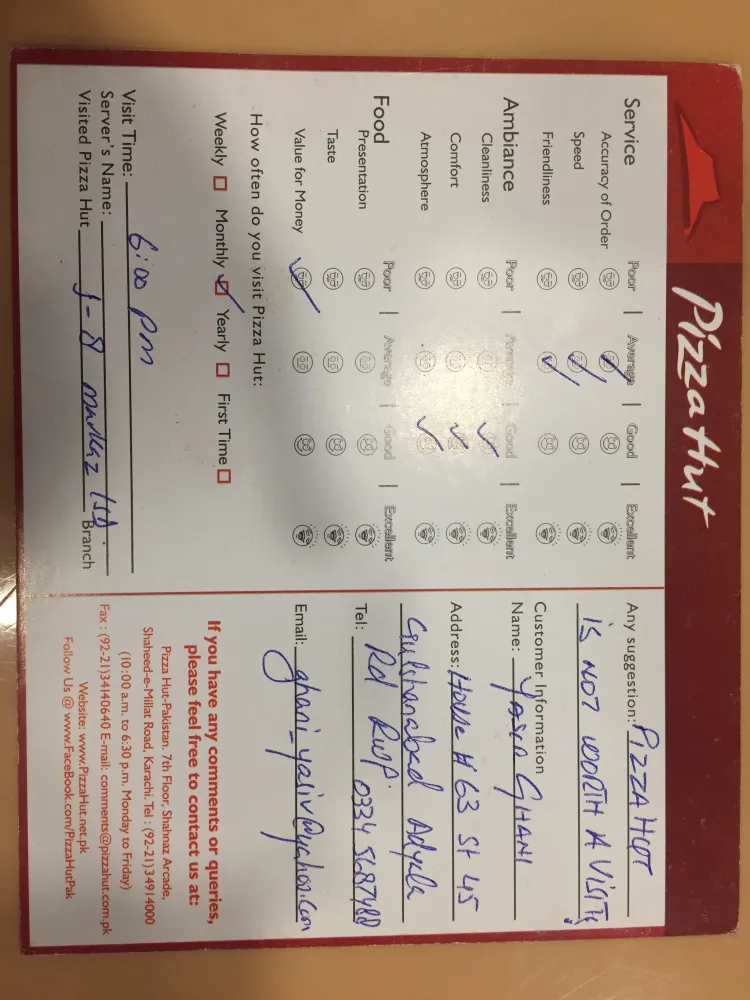 Pizza Hut
Service Poor | Average | Good | Excellent
Accuracy of Order
Speed
Friendliness
Ambiance Poor | Average | Good | Excellent
Cleanliness
Comfort
Atmosphere
Food Poor | Average | Good | Excellent
Presentation
Taste
Value for Money
How often do you visit Pizza Hut:
Weekly Monthly Yearly First Time
Visit Time: 6:00 pm
Server's Name:
Visited Pizza Hut J-8 markaz Isb. Branch
Any suggestion: PIZZA HUT
IS NOT WORTH A VISIT
Customer Information
Name: Yasir GHANI
Address: House # 63 St 45
Gulshanabad Adyala
Rd Rwp.
Tel: 0334
Email: ghani_yasir@yahoo.com
If you have any comments or queries,
please feel free to contact us at:
Pizza Hut-Pakistan. 7th Floor, Shahnaz Arcade,
Shaheed-e-Millat Road, Karachi. Tel : (92-21)34914000
(10:00 a.m. to 6:30 p.m. Monday to Friday)
Fax : (92-21)34140640 E-mail: comments@pizzahut.com.pk
Website: www.PizzaHut.net.pk
Follow Us @ www.FaceBook.com/PizzaHutPak